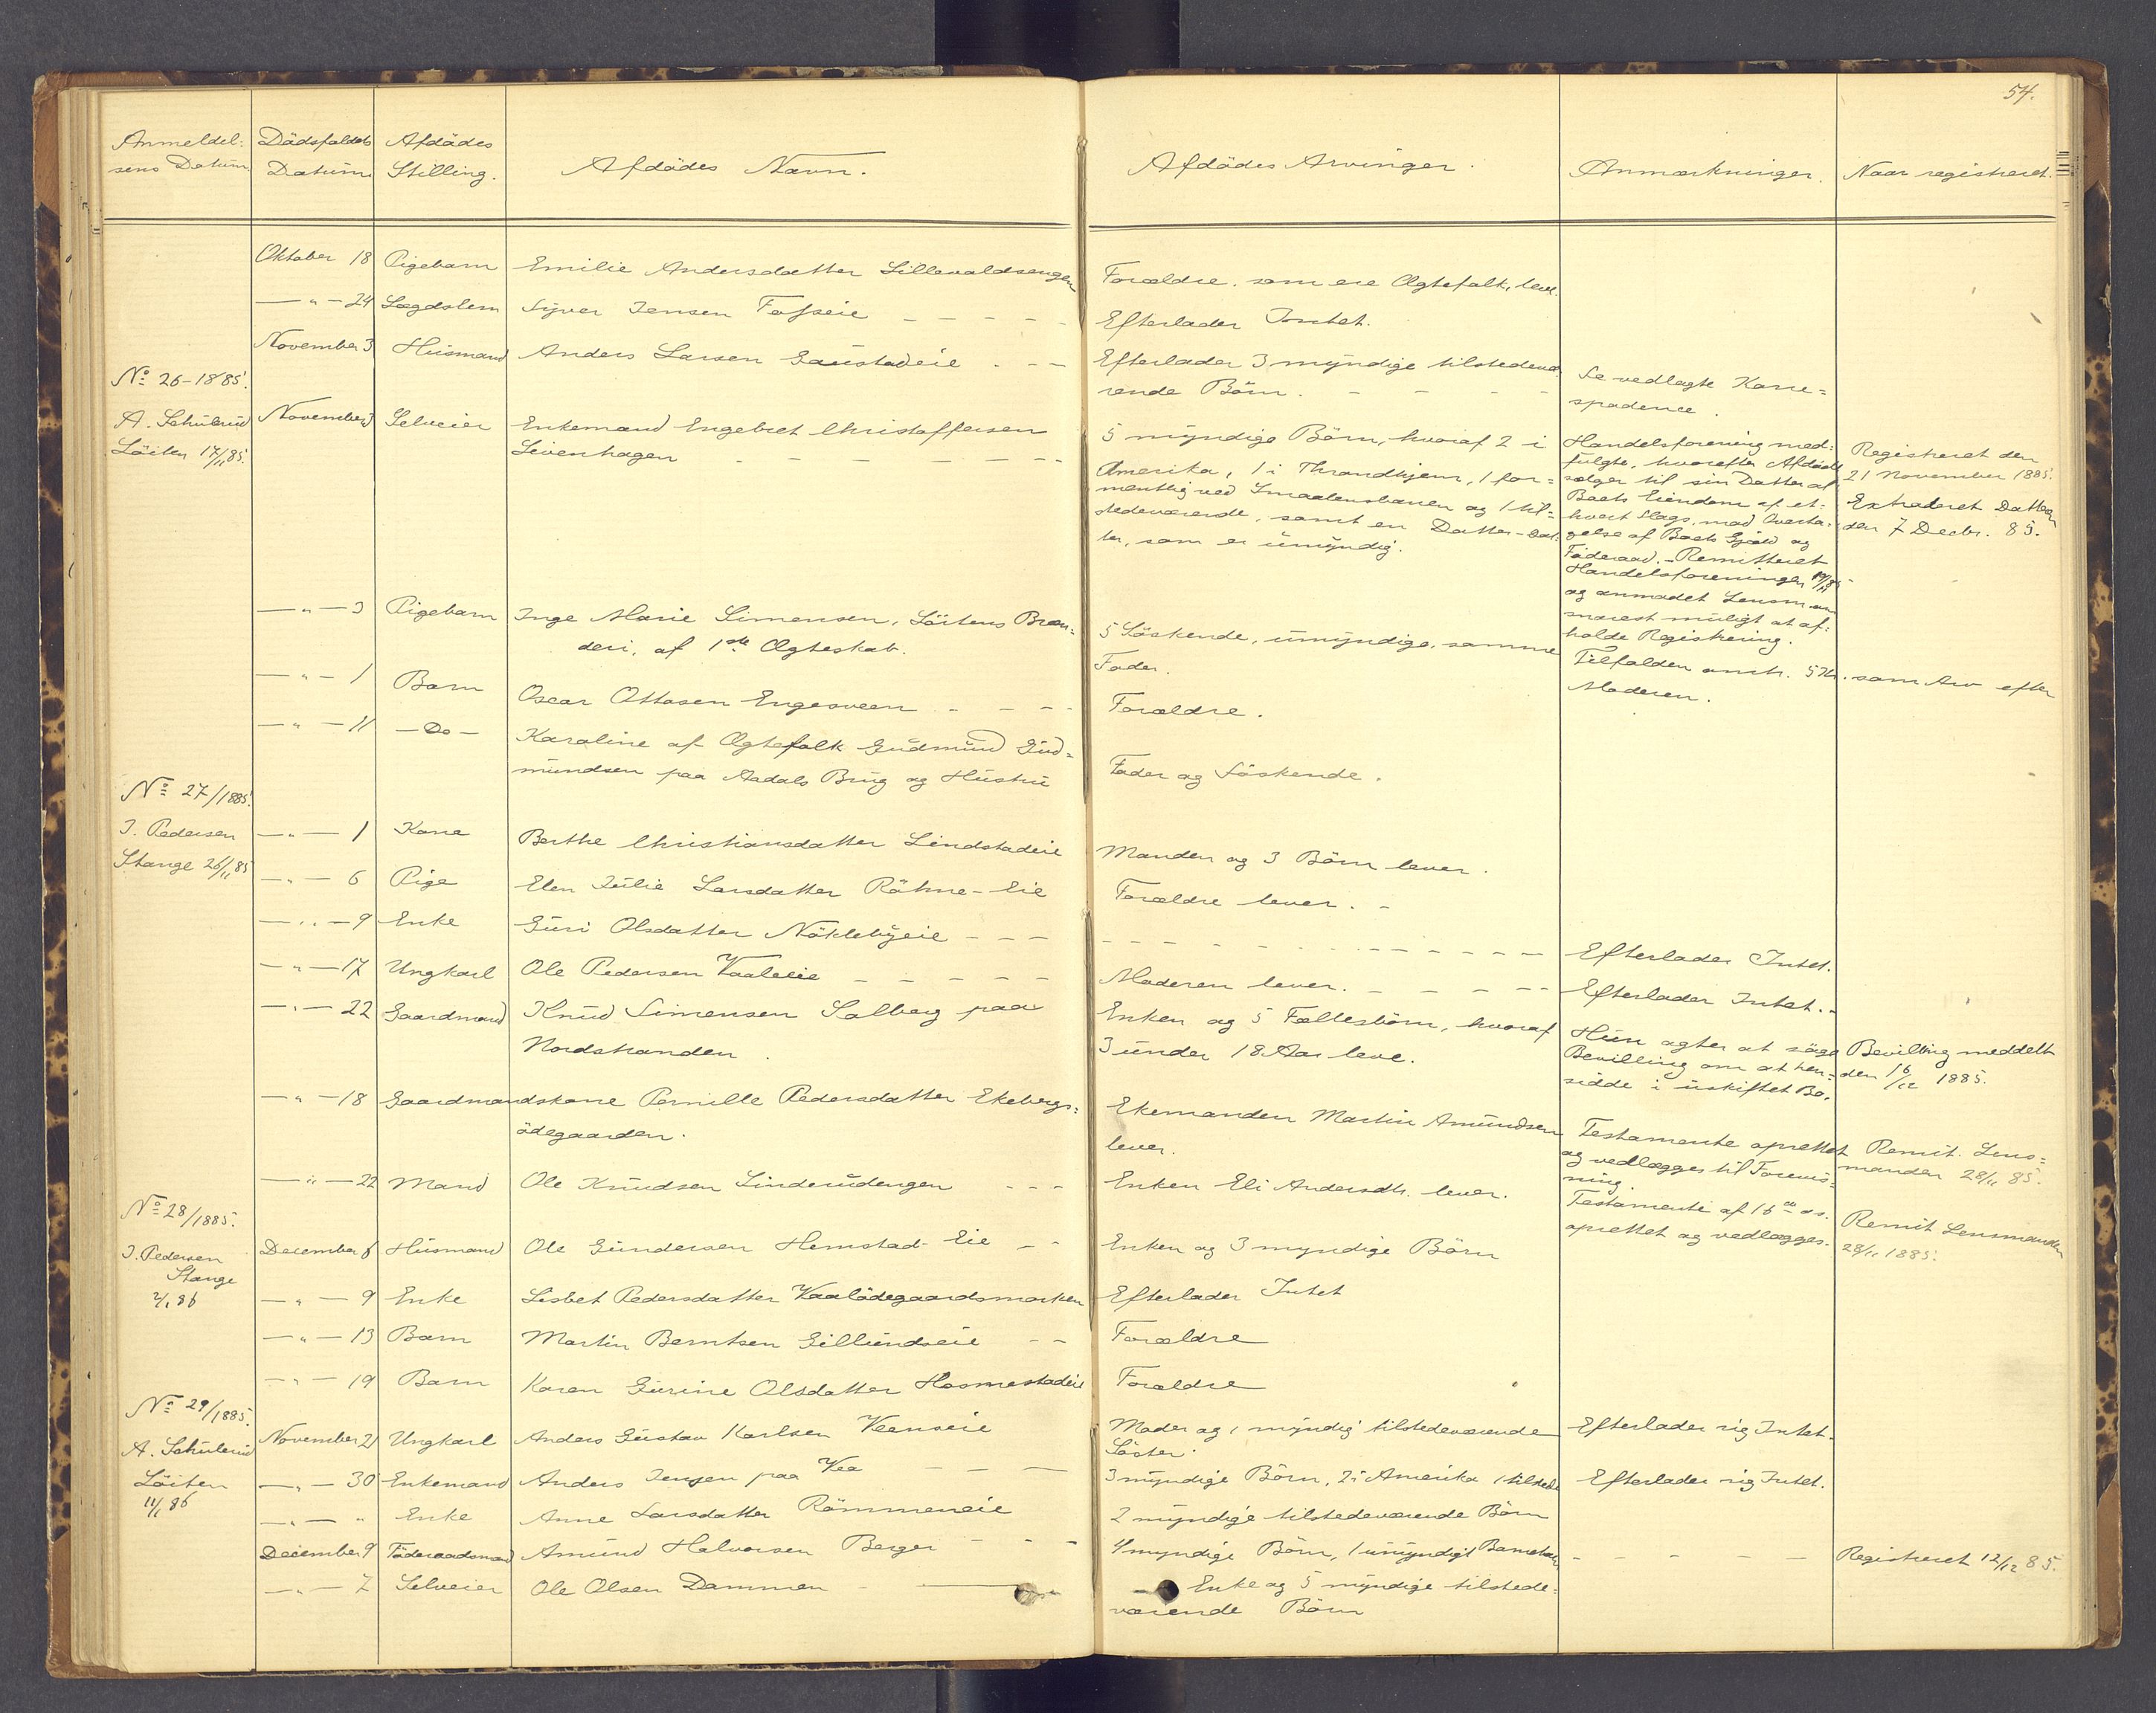 54.
Anmeldel-
sens Datum
Dödsfaldets
Datum
Afdödes
Stilling.
Afdödes Navn.
Afdödes Arvinger.
Anmærkninger.
Naar registreret.
Oktober 18 Pigebarn Emilie Andersdatter Lillevaldsengen
Forældre, som ere Ægtefolk, leve.
— " — 24 Lægdslem Syver Jensen Fosseie
Efterlader Intet.
November 3 Husmand Anders Larsen Gaustadeie
Efterlader 3 myndige tilstedevæ-
rende Börn.
Se vedlagte Korre=
spodence.
No 26-1885.
A. Schulerud
Löiten 17/11 85.
November 3 Selveier Enkemand Engebret Christoffersen
Livenhagen
5 myndige Börn, hvoraf 2 i
Amerika, 1 i Throndhjem, 1 for=
mentlig ved Smaalensbanen og 1 til=
stedeværende, samt en Datter-Dat-
ter, som er umyndig.
Handelsforening med-
fulgte, hvorefter Afdöde
sælger til sin Datter al
Boets Eiendom af et-
hvert Slags mod Overta-
gelse af Boets Gjæld og
Föderaad. - Remitteret
Handelsforeningen 19/11 85
og anmodet Lensm. om
snarest muligt at af-
holde Registrering.
Registreret den
21 November 1885.
Extraderet Datteren
den 7 Decbr. 85.
— " — 3 Pigebarn Inge Marie Simensen, Löitens Bræn-
deri, af 1ste Ægteskab.
5 Söskende, umyndige, samme
Fader.
Tilfalden omtr. 5 Kr. som Arv efter
Moderen.
— " — 1 Barn Oscar Ottosen Engesveen
Forældre.
— " — 11 — Do — Karoline af Ægtefolk Gudmund Gud=
mundsen paa Aadals Brug og Hustru
Fader og Söskende.
No 27/1885.
J. Pedersen
Stange 26/11 85
— " — 1 Kone Berthe Christiansdatter Lindstadeie
Manden og 3 Börn lever.
— " — 6 Pige Elen Julie Larsdatter Röhne-Eie
Forældre lever.
— " — 9 Enke Guri Olsdatter Nöklebyeie
Efterlader Intet.
— " — 17 Ungkarl Ole Pedersen Vaaleeie
Moderen lever.
Efterlader Intet.
— " — 22 Gaardmand Knud Simensen Solberg paa
Nordstranden.
Enken og 5 Fællesbörn, hvoraf
3 under 18 Aar leve.
Hun agter at söge
Bevilling om at hen-
sidde i uskiftet Bo.
Bevilling meddelt
den 16/12 1885.
— " — 18 Gaardmandskone Pernille Pedersdatter Ekebergs=
ödegaarden.
Ekemanden Martin Amundsen
lever.
Testamente oprettet
og vedlægges til Forevis-
ning.
Remit. Lens=
manden 28/11 85.
— " — 22 Mand Ole Knudsen Linderudengen
Enken Eli Andersdtr. lever.
Testamente af 16de ds.
oprettet og vedlægges.
Remit Lensmanden
28/11 1885.
No 28/1885.
J. Pedersen
Stange
2/1 86
December 6 Husmand Ole Gundersen Hemstad-Eie
Enken og 3 myndige Börn
— " — 9 Enke Lisbet Pedersdatter Vaalödegaardsmarken
Efterlader Intet
— " — 13 Barn Martin Berntsen Gillundseie
Forældre
— " — 19 Barn Karen Gurine Olsdatter Hosmestadeie
Forældre
No 29/1885.
A. Schulerud
Löiten
11/1 86
November 21 Ungkarl Anders Gustav Karlsen Veenseie
Moder og 1 myndig tilstedeværende
Söster.
Efterlader sig Intet.
— " — 30 Enkemand Anders Jensen paa Vea
3 myndige Börn, 2 i Amerika 1 tilstede
Efterlader sig Intet.
— " — " Enke Anne Larsdatter Römmeneie
2 myndige tilstedeværende Börn
December 9 Föderaadsmand Amund Halvorsen Berger
4 myndige Börn, 1 umyndigt Barnebarn
Registreret 12/12 85.
— " — 7 Selveier Ole Olsen Dammen
Enke og 5 myndige tilstede-
værende Börn